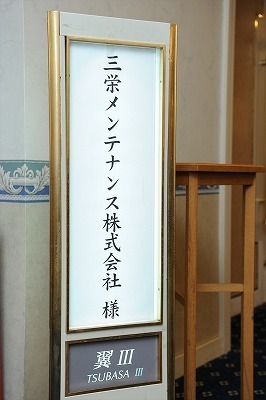 三栄メンテナンス株式会社 様
翼 III
TSUBASA III